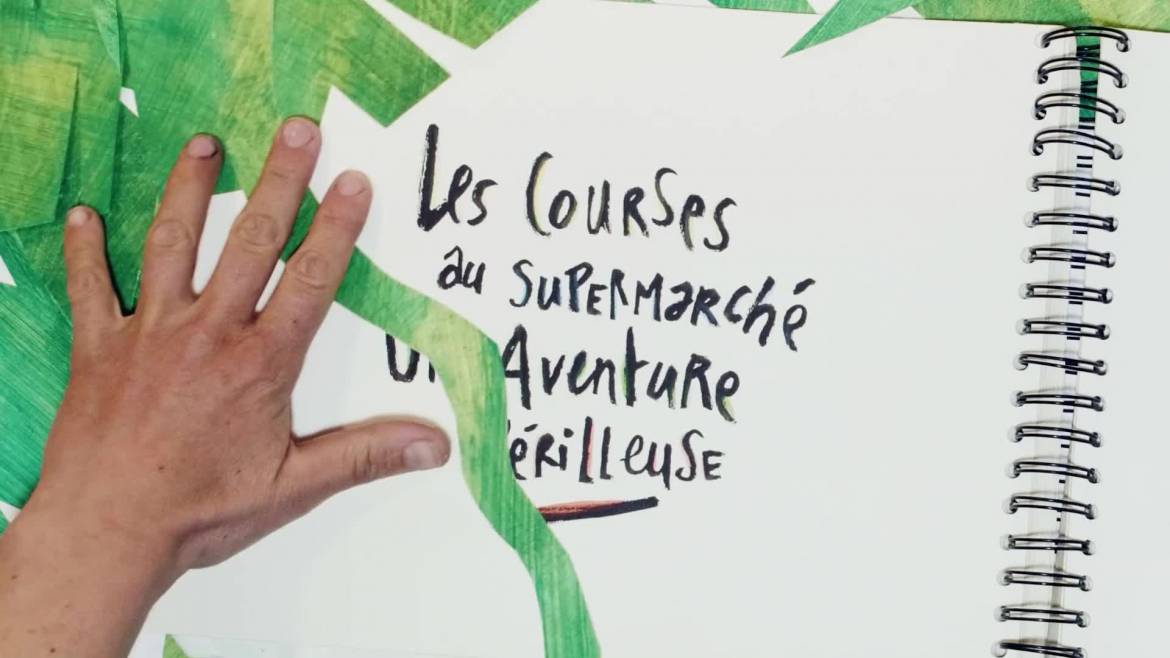 Les Courses
au supermarché
U Aventure
érilleuse